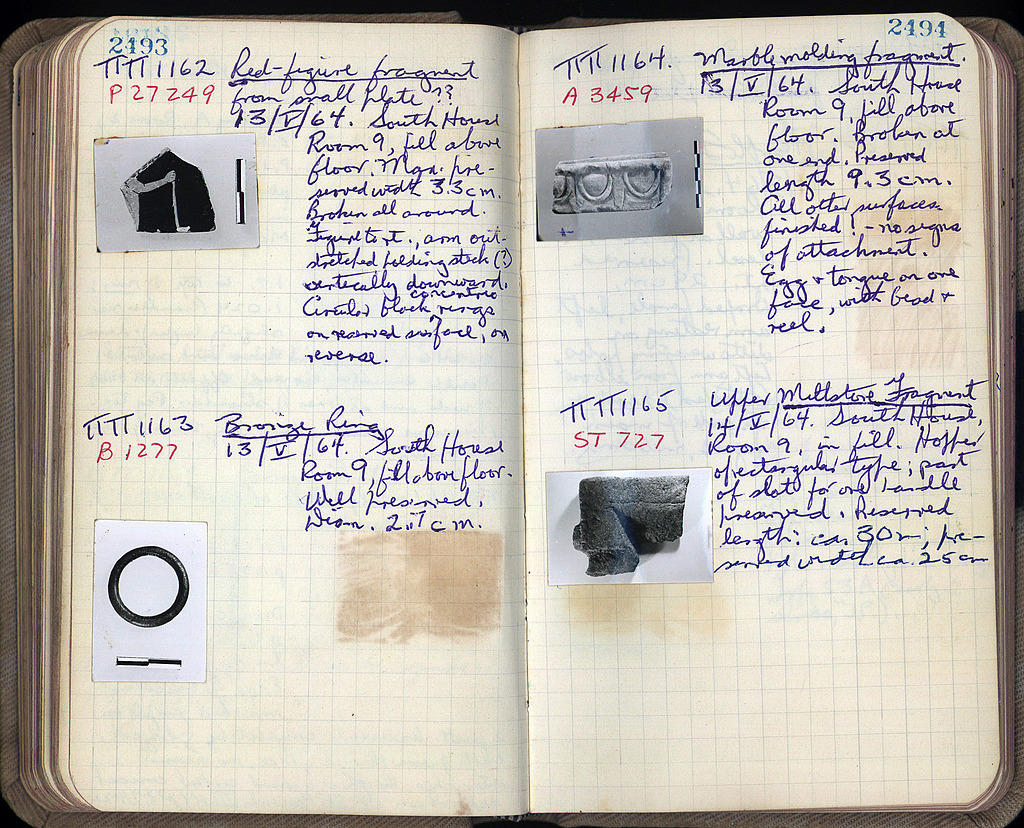 2493
ΠΠ 1162 Red-figure fragment
P 27249 from small plate ??
13/V/64. South House
Room 9, fill above
floor. Max. pre-
served width 3.3 cm.
Broken all around.
Figure to rt., arm out-
stretched holding stick (?)
vertically downward.
concentric
Circular black rings
on reserved surface, on
reverse.
ΠΠ 1163 Bronze Ring
B 1277 13/V/64. South House
Room 9, fill above floor.
Well preserved.
Diam. 2.7 cm.
2494
ΠΠ 1164. Marble molding fragment.
A 3459 13/V/64. South House
Room 9, fill above
floor. Broken at
one end. Preserved
length 9.3 cm.
All other surfaces
finished! - no signs
of attachment.
Egg + tongue on one
face, with bead +
reel.
ΠΠ 1165 Upper Millstone Fragment
ST 727 14/V/64. South House,
Room 9, in fill. Hopper
of rectangular type; part
of slot for one handle
preserved. Preserved
length: ca. 30 m; pre-
served width ca. 25 cm